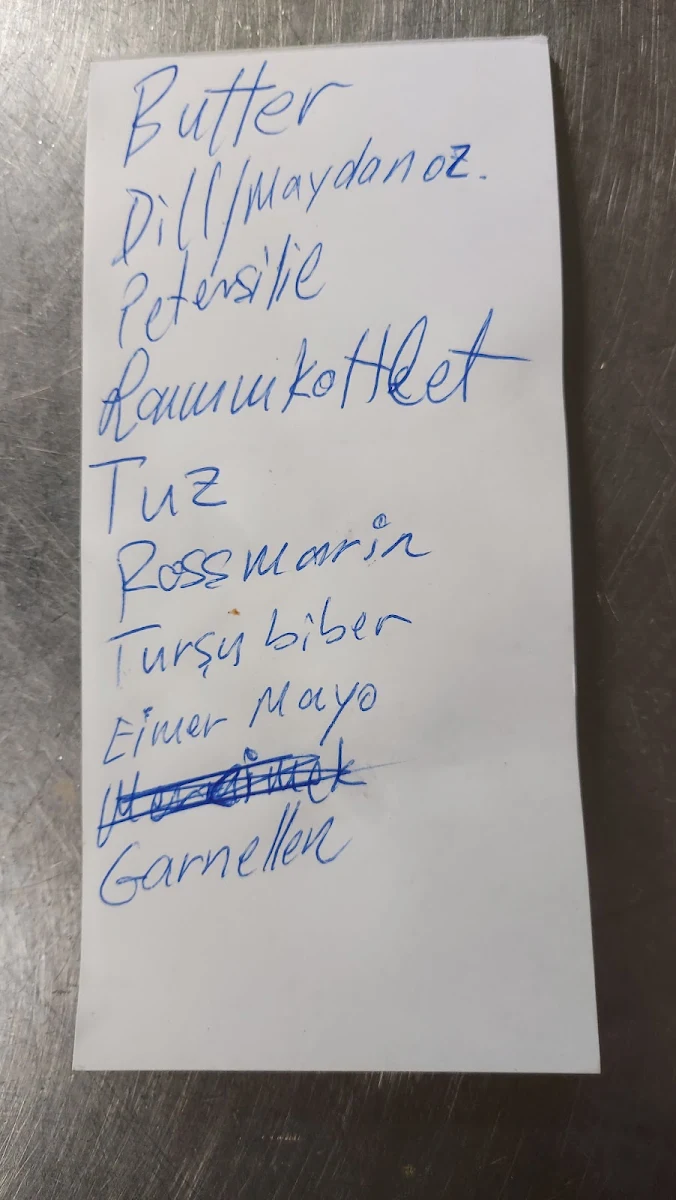 Butter
Dill/Maydanoz.
Petersilie
Lammkottlet
Tuz
Rossmarin
Turşu biber
Eimer Mayo
Garnellen